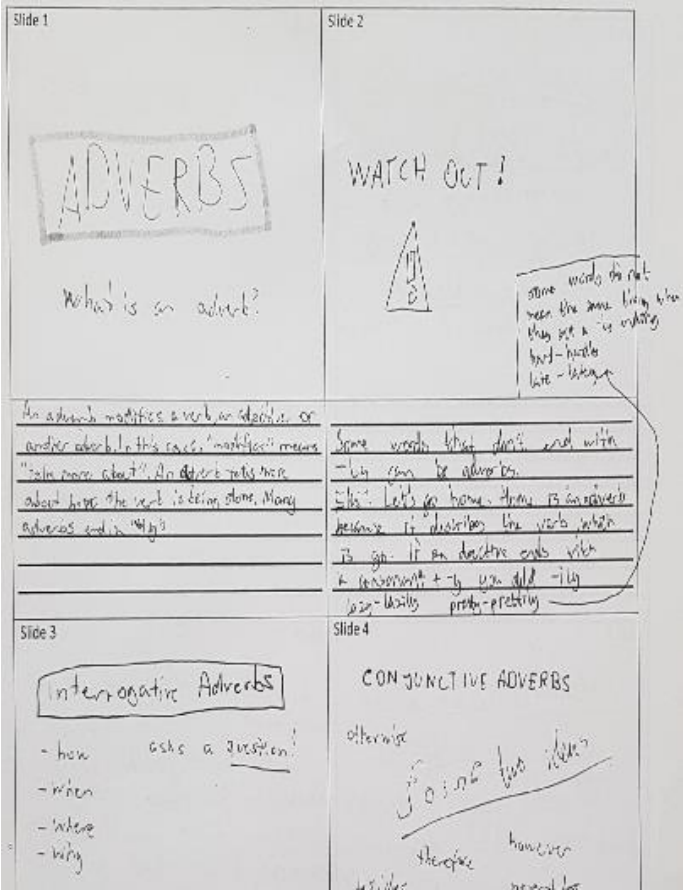 Slide 1
ADVERBS
What is an advert?
An adverb modifies a verb, an adjective or
another adverb. In this case, "modifies" means
"tells more about". An adverb tells more
about how the verb is being done. Many
adverbs end in "-ly"
Slide 2
WATCH OUT!
some words do not
mean the same thing when
they get a -ly ending
hard-hardly
late-lately
Some words that don't end with
-ly can be adverbs.
Let's go home. Home is an adverb
because it describes the verb which
is go. If an adjective ends with
a consonant + -y you add -ily
lazy-lazily pretty-prettily
Slide 3
Interrogative Adverbs
- how asks a question!
- when
- where
- why
Slide 4
CONJUNCTIVE ADVERBS
otherwise
Joins two ideas
therefore however
besides